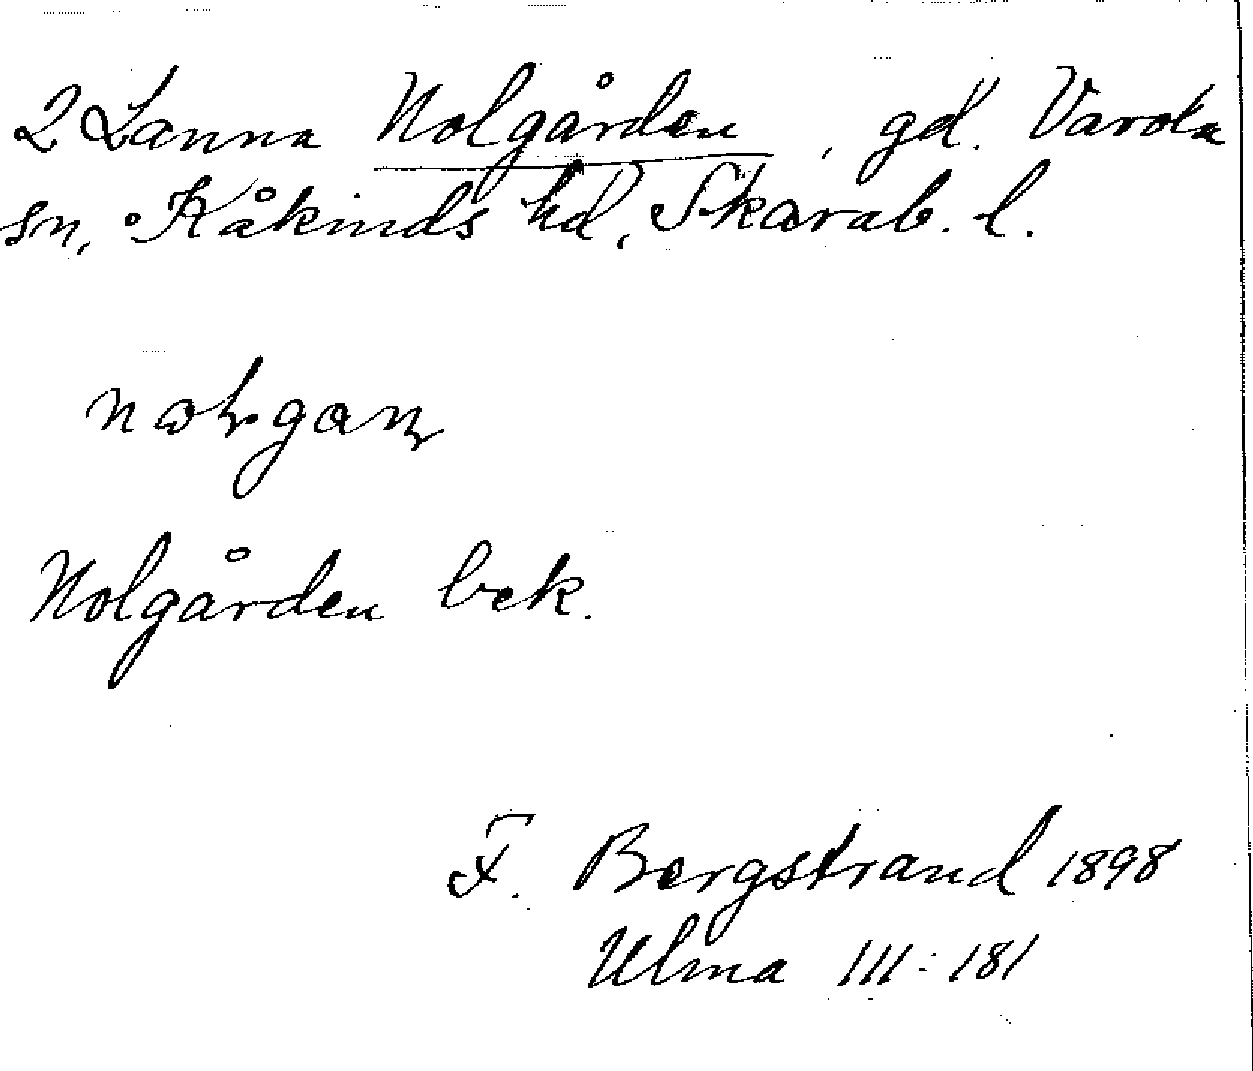 2 Lanna Nolgården, gd. Varola
sn, Kåkinds hd, Skarab. l.
Nolgården bek.
F. Bergstrand 1898
Ulma III:181